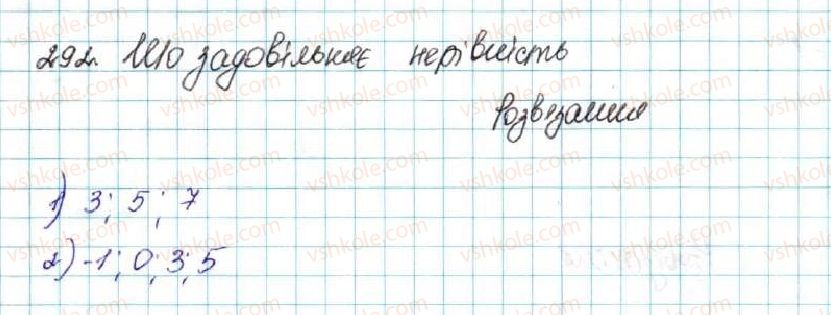 292. Що задовільняє нерівність
Розвязання
1) 3; 5; 7
2) -1; 0; 3; 5